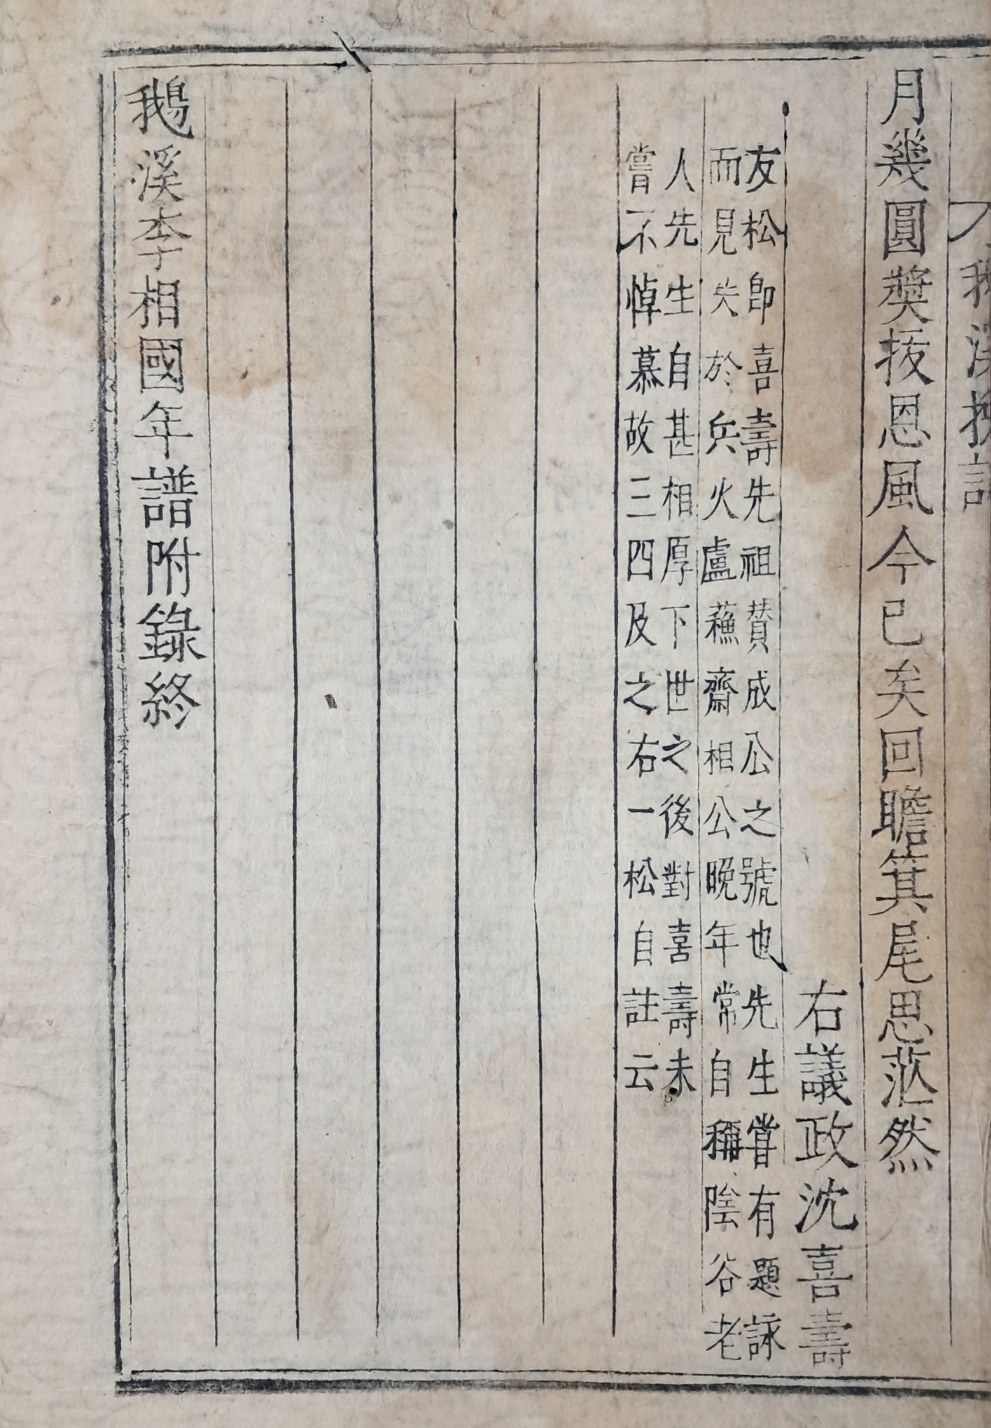 月幾圓奬拔恩風今已矣回瞻箕尾思茫然
右議政沈喜壽
友松卽喜壽先祖賛成公之號也先生嘗有題詠
而見失於兵火盧蘓齋相公晚年常自稱陰谷老
人先生自甚相厚下世之後對喜壽未
嘗不悼慕故三四及之右一松自註云
鵝溪李相國年譜附錄終